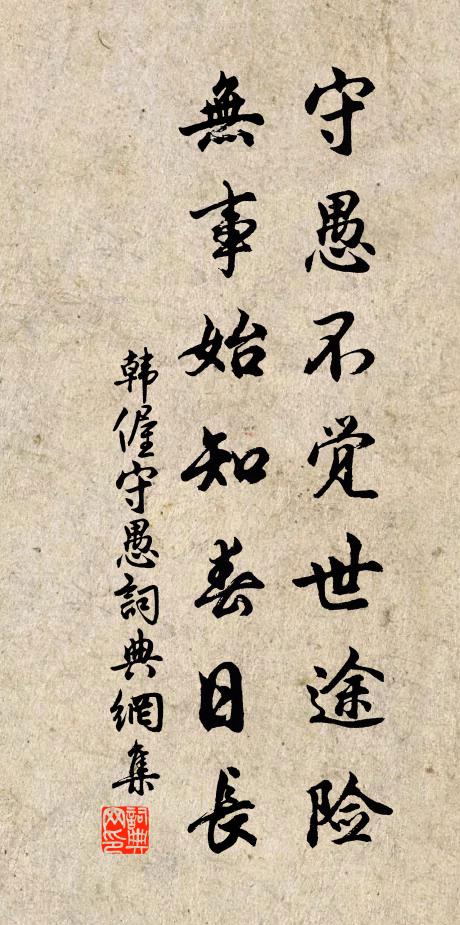 守愚不觉世途险
無事始知春日長
韩偓守愚詞典網集
詞典
网印